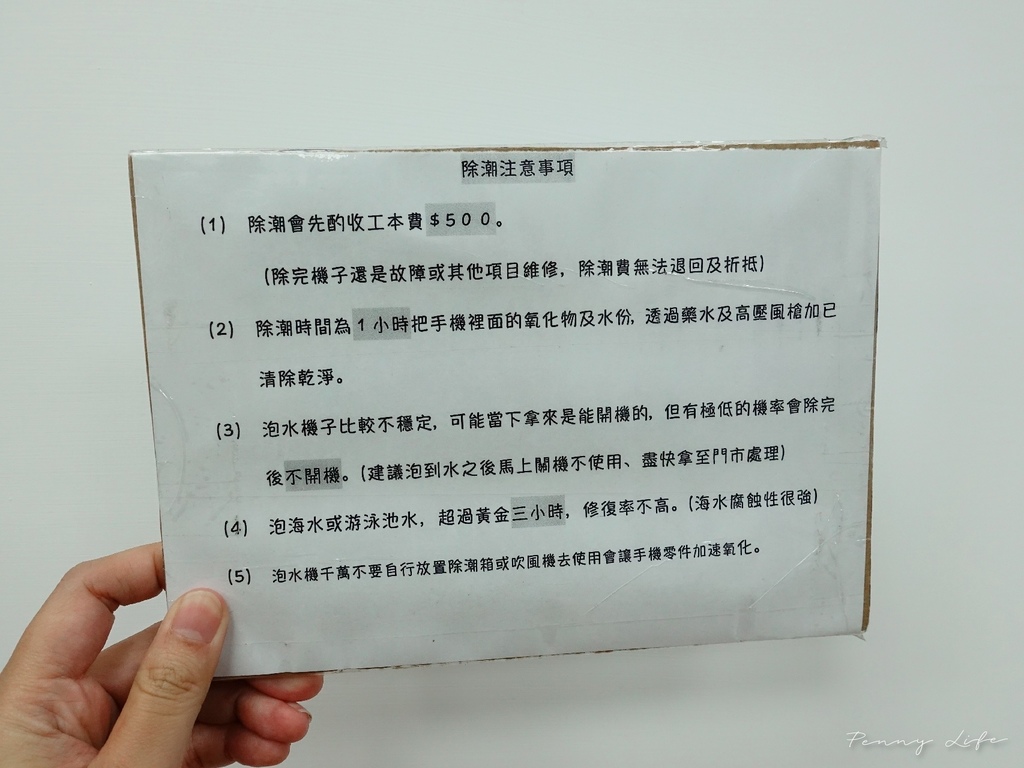 除潮注意事項
(1) 除潮會先酌收工本費$500。
(除完機子還是故障或其他項目維修, 除潮費無法退回及折抵)
(2) 除潮時間為1小時把手機裡面的氧化物及水份, 透過藥水及高壓風槍加已
清除乾淨。
(3) 泡水機子比較不穩定, 可能當下拿來是能開機的, 但有極低的機率會除完
後不開機。(建議泡到水之後馬上關機不使用、盡快拿至門市處理)
(4) 泡海水或游泳池水, 超過黃金三小時, 修復率不高。(海水腐蝕性很強)
(5) 泡水機千萬不要自行放置除潮箱或吹風機去使用會讓手機零件加速氧化。
Penny Life